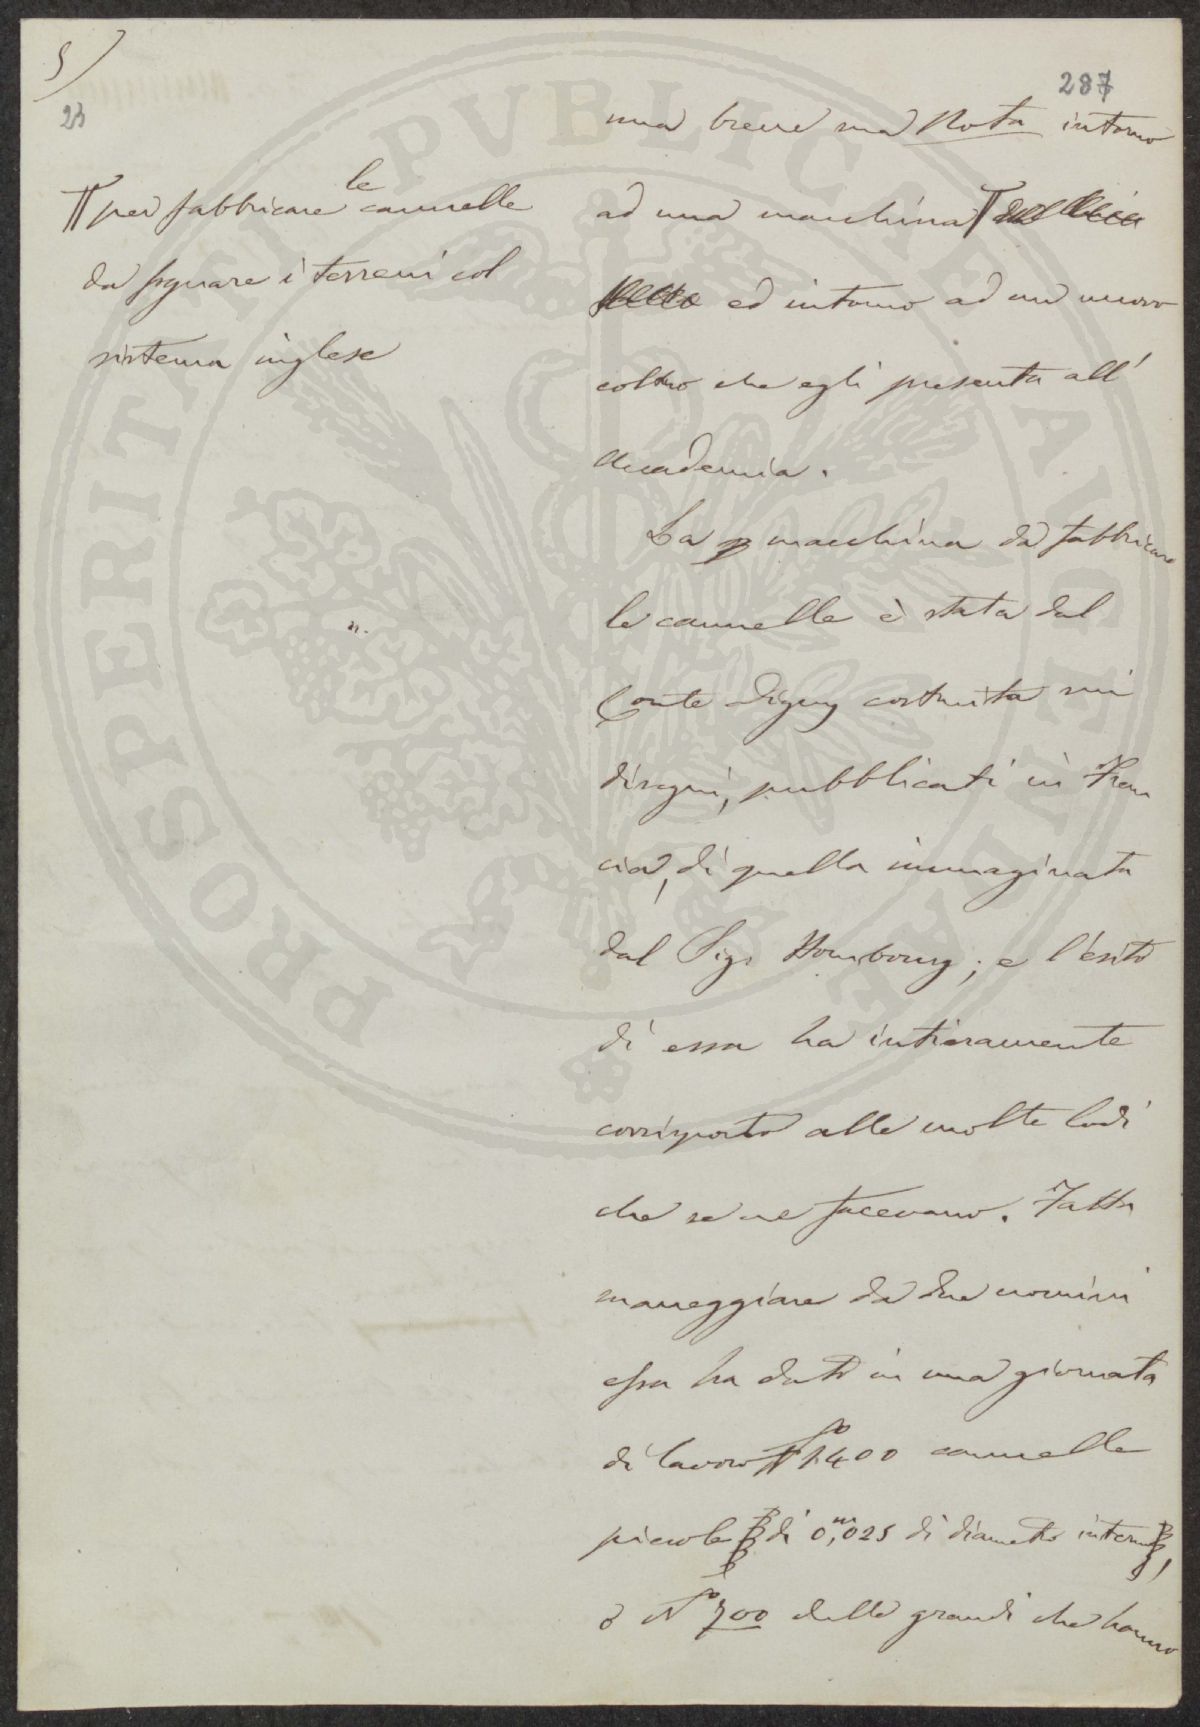 5)
23
287
una breve sua Nota intorno
ad una macchina
per fabbricare le cannelle
da fognare i terreni col
sistema inglese
ed intorno ad un nuovo
coltro che egli presenta all'
Accademia.
La macchina da fabbricare
le cannelle è stata dal
Conte Digny costruita sui
disegni, pubblicati in Fran
cia, di quella immaginata
dal Sigr. Hombourg; e l'esito
di essa ha intieramente
corrisposto alle molte lodi
che se ne facevano. Fatta
maneggiare da due uomini
essa ha dato in una giornata
di lavoro No 1400 cannelle
piccole di 0,m025 di diametro interno,
o No 700 delle grandi che hanno
PROSPERITATI PVBLICAE AVGENDAE